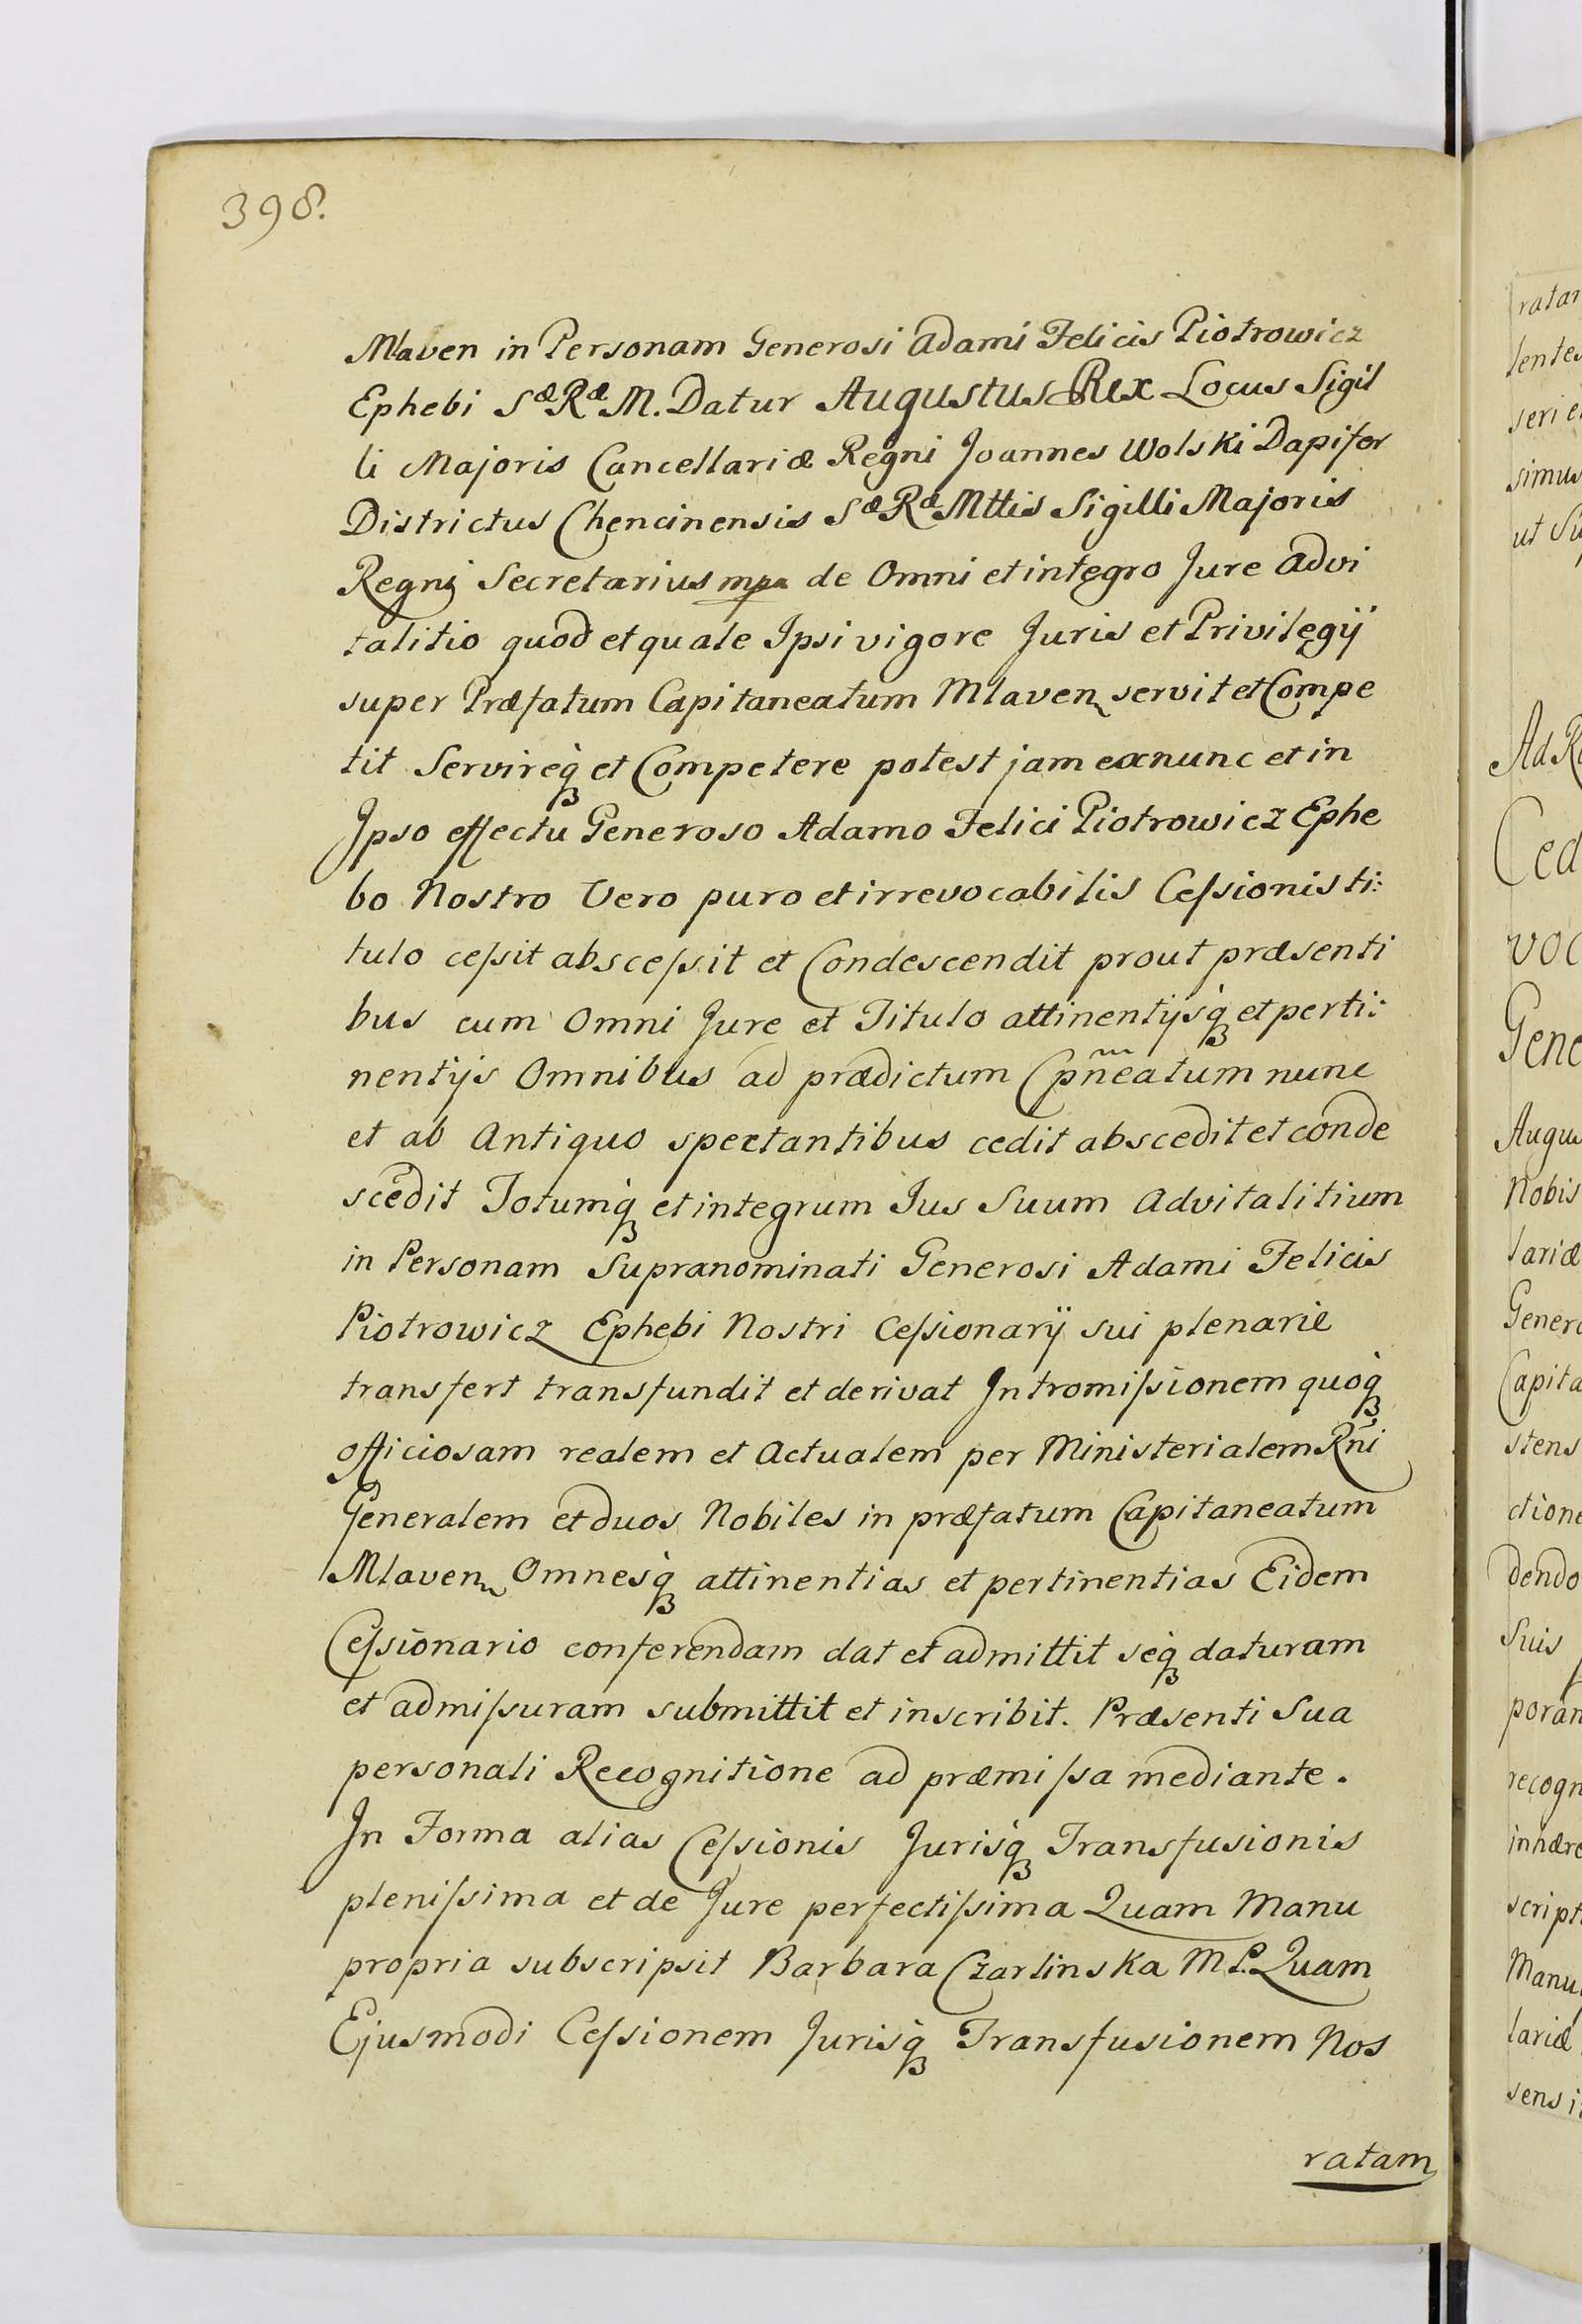 398.
Mlaven in Personam Generosi Adami Felicis Piotrowicz
Ephebi Sæ Ræ M. Datur Augustus Rex Locus Sigil
li Majoris Cancellariæ Regni Joannes Wolski Dapifer
Districtus Chencinensis Sæ Ræ Mttis Sigilli Majoris
Regni Secretarius mpa de Omni et integro Jure Advi
talitio quod et quale Ipsi vigore Juris et Privilegij
super Præfatum Capitaneatum Mlaven servit et Compe
tit Servireq₃ et Competere potest jam ex nunc et in
Ipso effectu Generoso Adamo Felici Piotrowicz Ephe
bo Nostro Vero puro et irrevocabilis Ceſsionis ti:
tulo ceſsit absceſsit et Condescendit prout præsenti
bus cum Omni Jure et Titulo attinentijsq₃ et perti:
nentijs Omnibus ad prædictum Cpneatum nunc
et ab Antiquo spectantibus cedit abscedit et conde
scedit Totumq₃ et integrum Jus Suum Advitalitium
in Personam Supranominati Generosi Adami Felicis
Piotrowicz Ephebi Nostri Ceſsionarij sui plenarie
transfert transfundit et derivat Intromiſsionem quoq₃
officiosam realem et Actualem per Ministerialem Rni
Generalem et duos Nobiles in præfatum Capitaneatum
Mlaven Omnesq₃ attinentias et pertinentias Eidem
Ceſsionario conferendam dat et admittit seq₃ daturam
et admiſsuram submittit et inscribit. Præsenti Sua
personali Recognitione ad præmiſsa mediante.
In Forma alias Ceſsionis Jurisq₃ Transfusionis
pleniſsima et de Jure perfectiſsima Quam Manu
propria subscripsit Barbara Czarlinska MP. Quam
Ejusmodi Ceſsionem Jurisq₃ Transfusionem Nos
ratam
lentes
simus
Ad
Ced
voc
Gene
Augu
Nobis
lariæ
Genero
Capita
stens
ctione
dendo
Suis
recogn
inhære
script
Manu
lariæ
sens